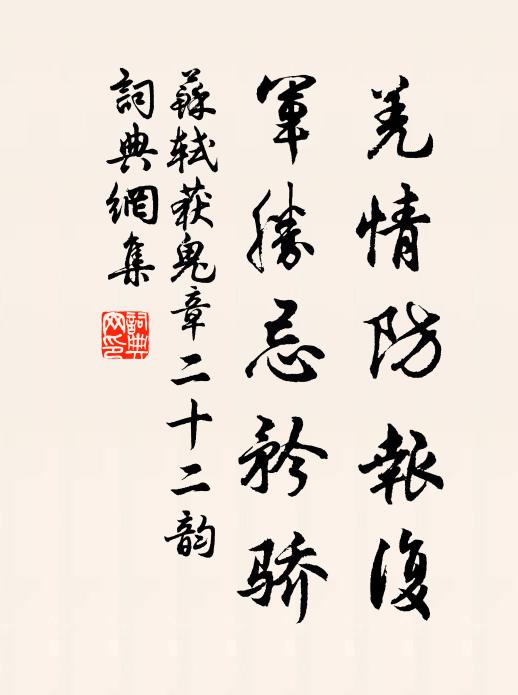 羌情防報復
軍勝忌矜骄
蘇軾获鬼章二十二韵
詞典網集
詞典網印